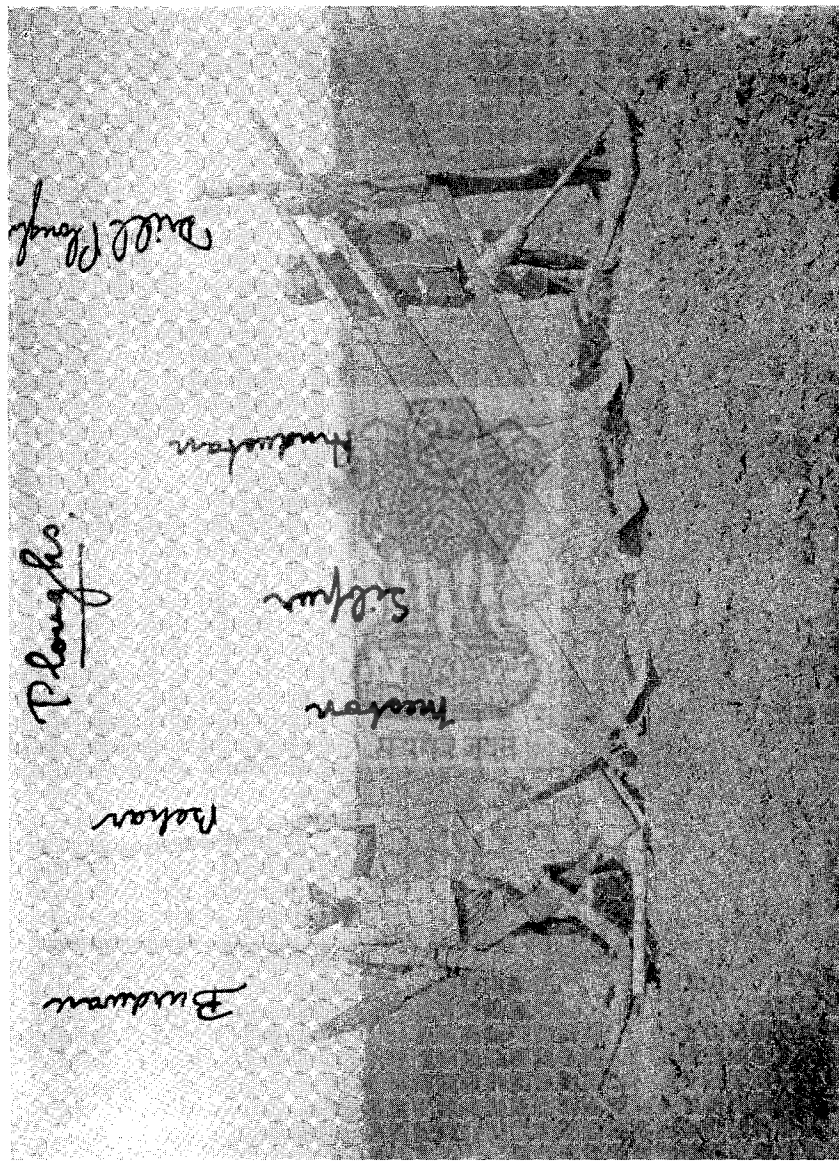 Ploughs.
Burdwan
Behar
Meston
Sibpur
Hindustan
Drill Plough